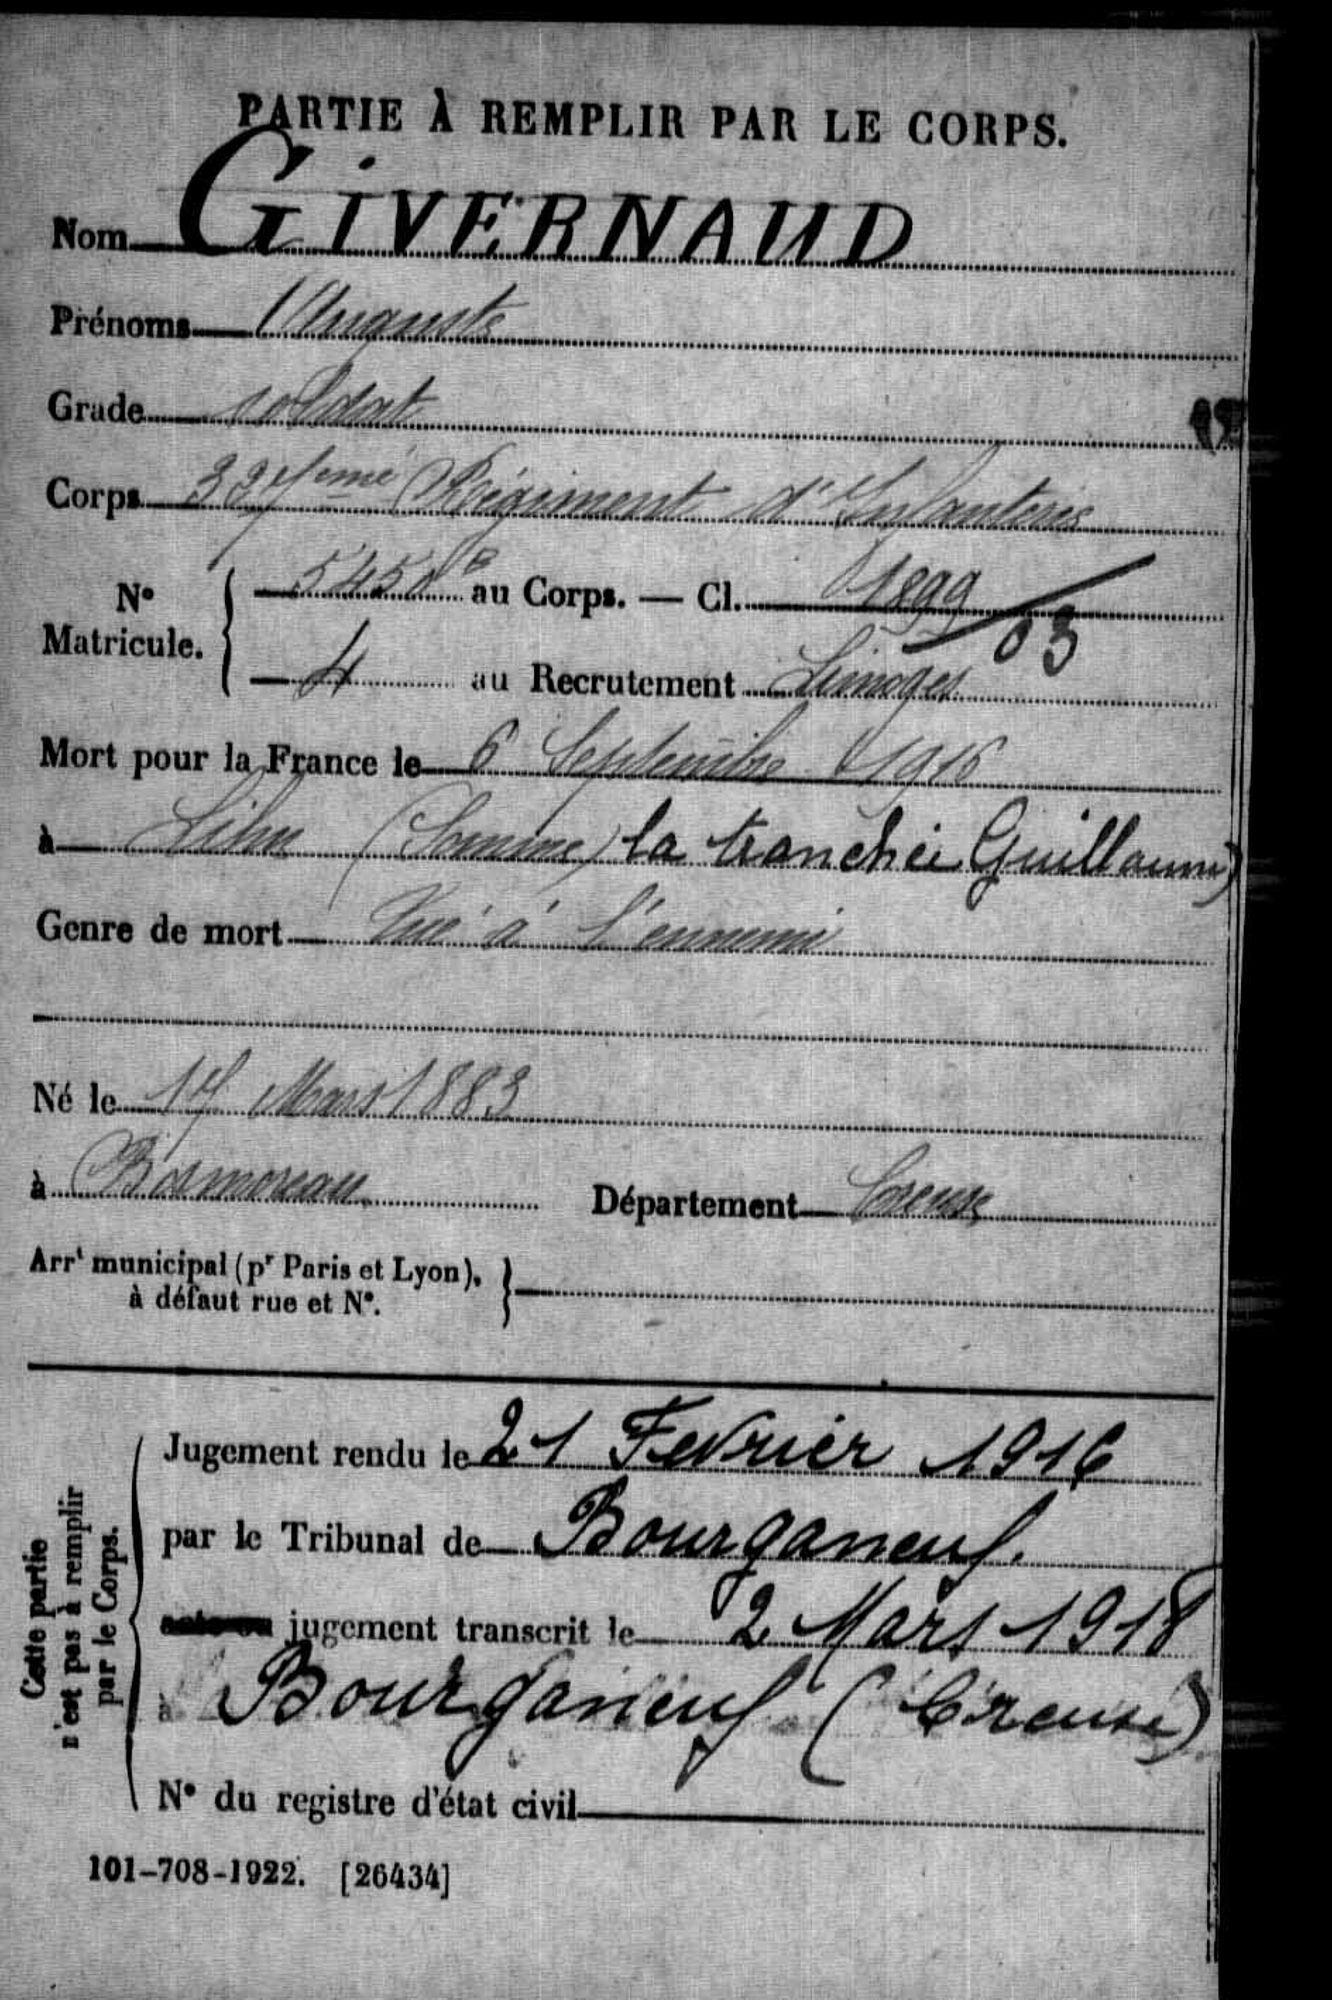 PARTIE À REMPLIR PAR LE CORPS.
Nom GIVERNAUD
Prénoms Auguste
Grade soldat
Corps 337eme Régiment d'Infanterie
N° Matricule. { au Corps. — Cl. 1899/03
4 au Recrutement Limoges
Mort pour la France le 6 Septembre 1916
à Lihu (Somme) la tranchée Guillaume)
Genre de mort Tué à l'ennemi
Né le 17 Mars 1883
à Bosmoreau Département Creuse
Arrt municipal (pr Paris et Lyon), }
à défaut rue et N°.
Cette partie n'est pas à remplir par le Corps.
Jugement rendu le 21 Fevrier 1916
par le Tribunal de Bourganeuf.
jugement transcrit le 2 Mars 1918
à Bourganeuf (Creuse)
N° du registre d'état civil
101-708-1922. [26434]